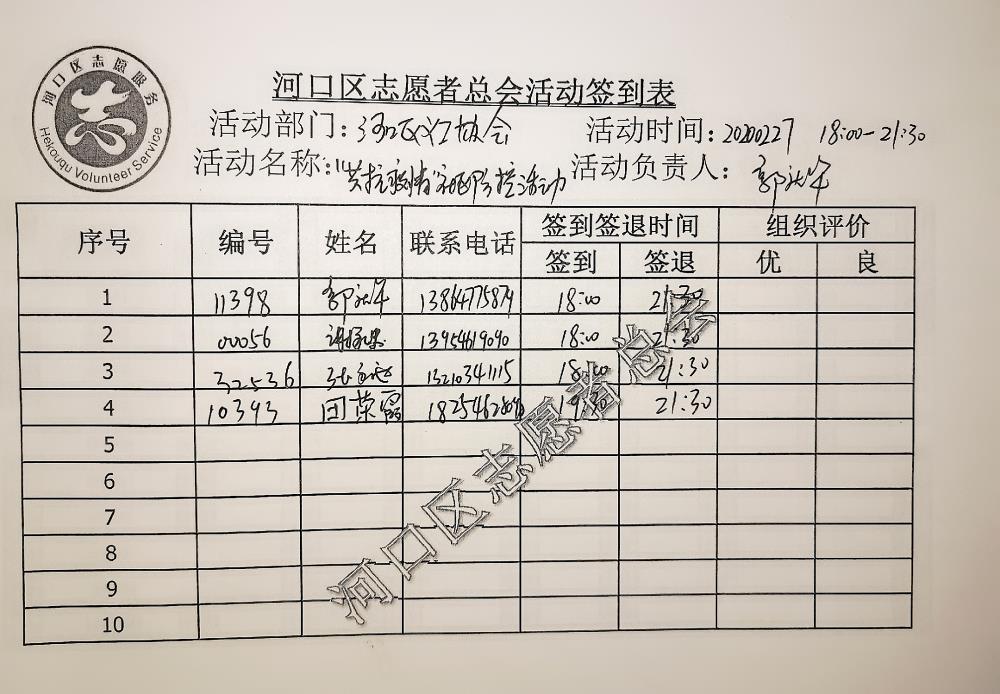 河口区志愿服务
Hekouqu Volunteer Service
河口区志愿者总会活动签到表
活动部门：河口区义工协会 活动时间：20200227 18:00-21:30
活动名称："共抗疫情"活动 活动负责人：郭
序号 编号 姓名 联系电话 签到签退时间 组织评价
签到 签退 优 良
1 11398 郭 13864775879 18:00 21:30
2 00056 谢 13954619090 18:00 21:30
3 32536 张 13210341115 18:00 21:30
4 10393 田荣 19:30 21:30
5
6
7
8
9
10
河口区志愿者总会